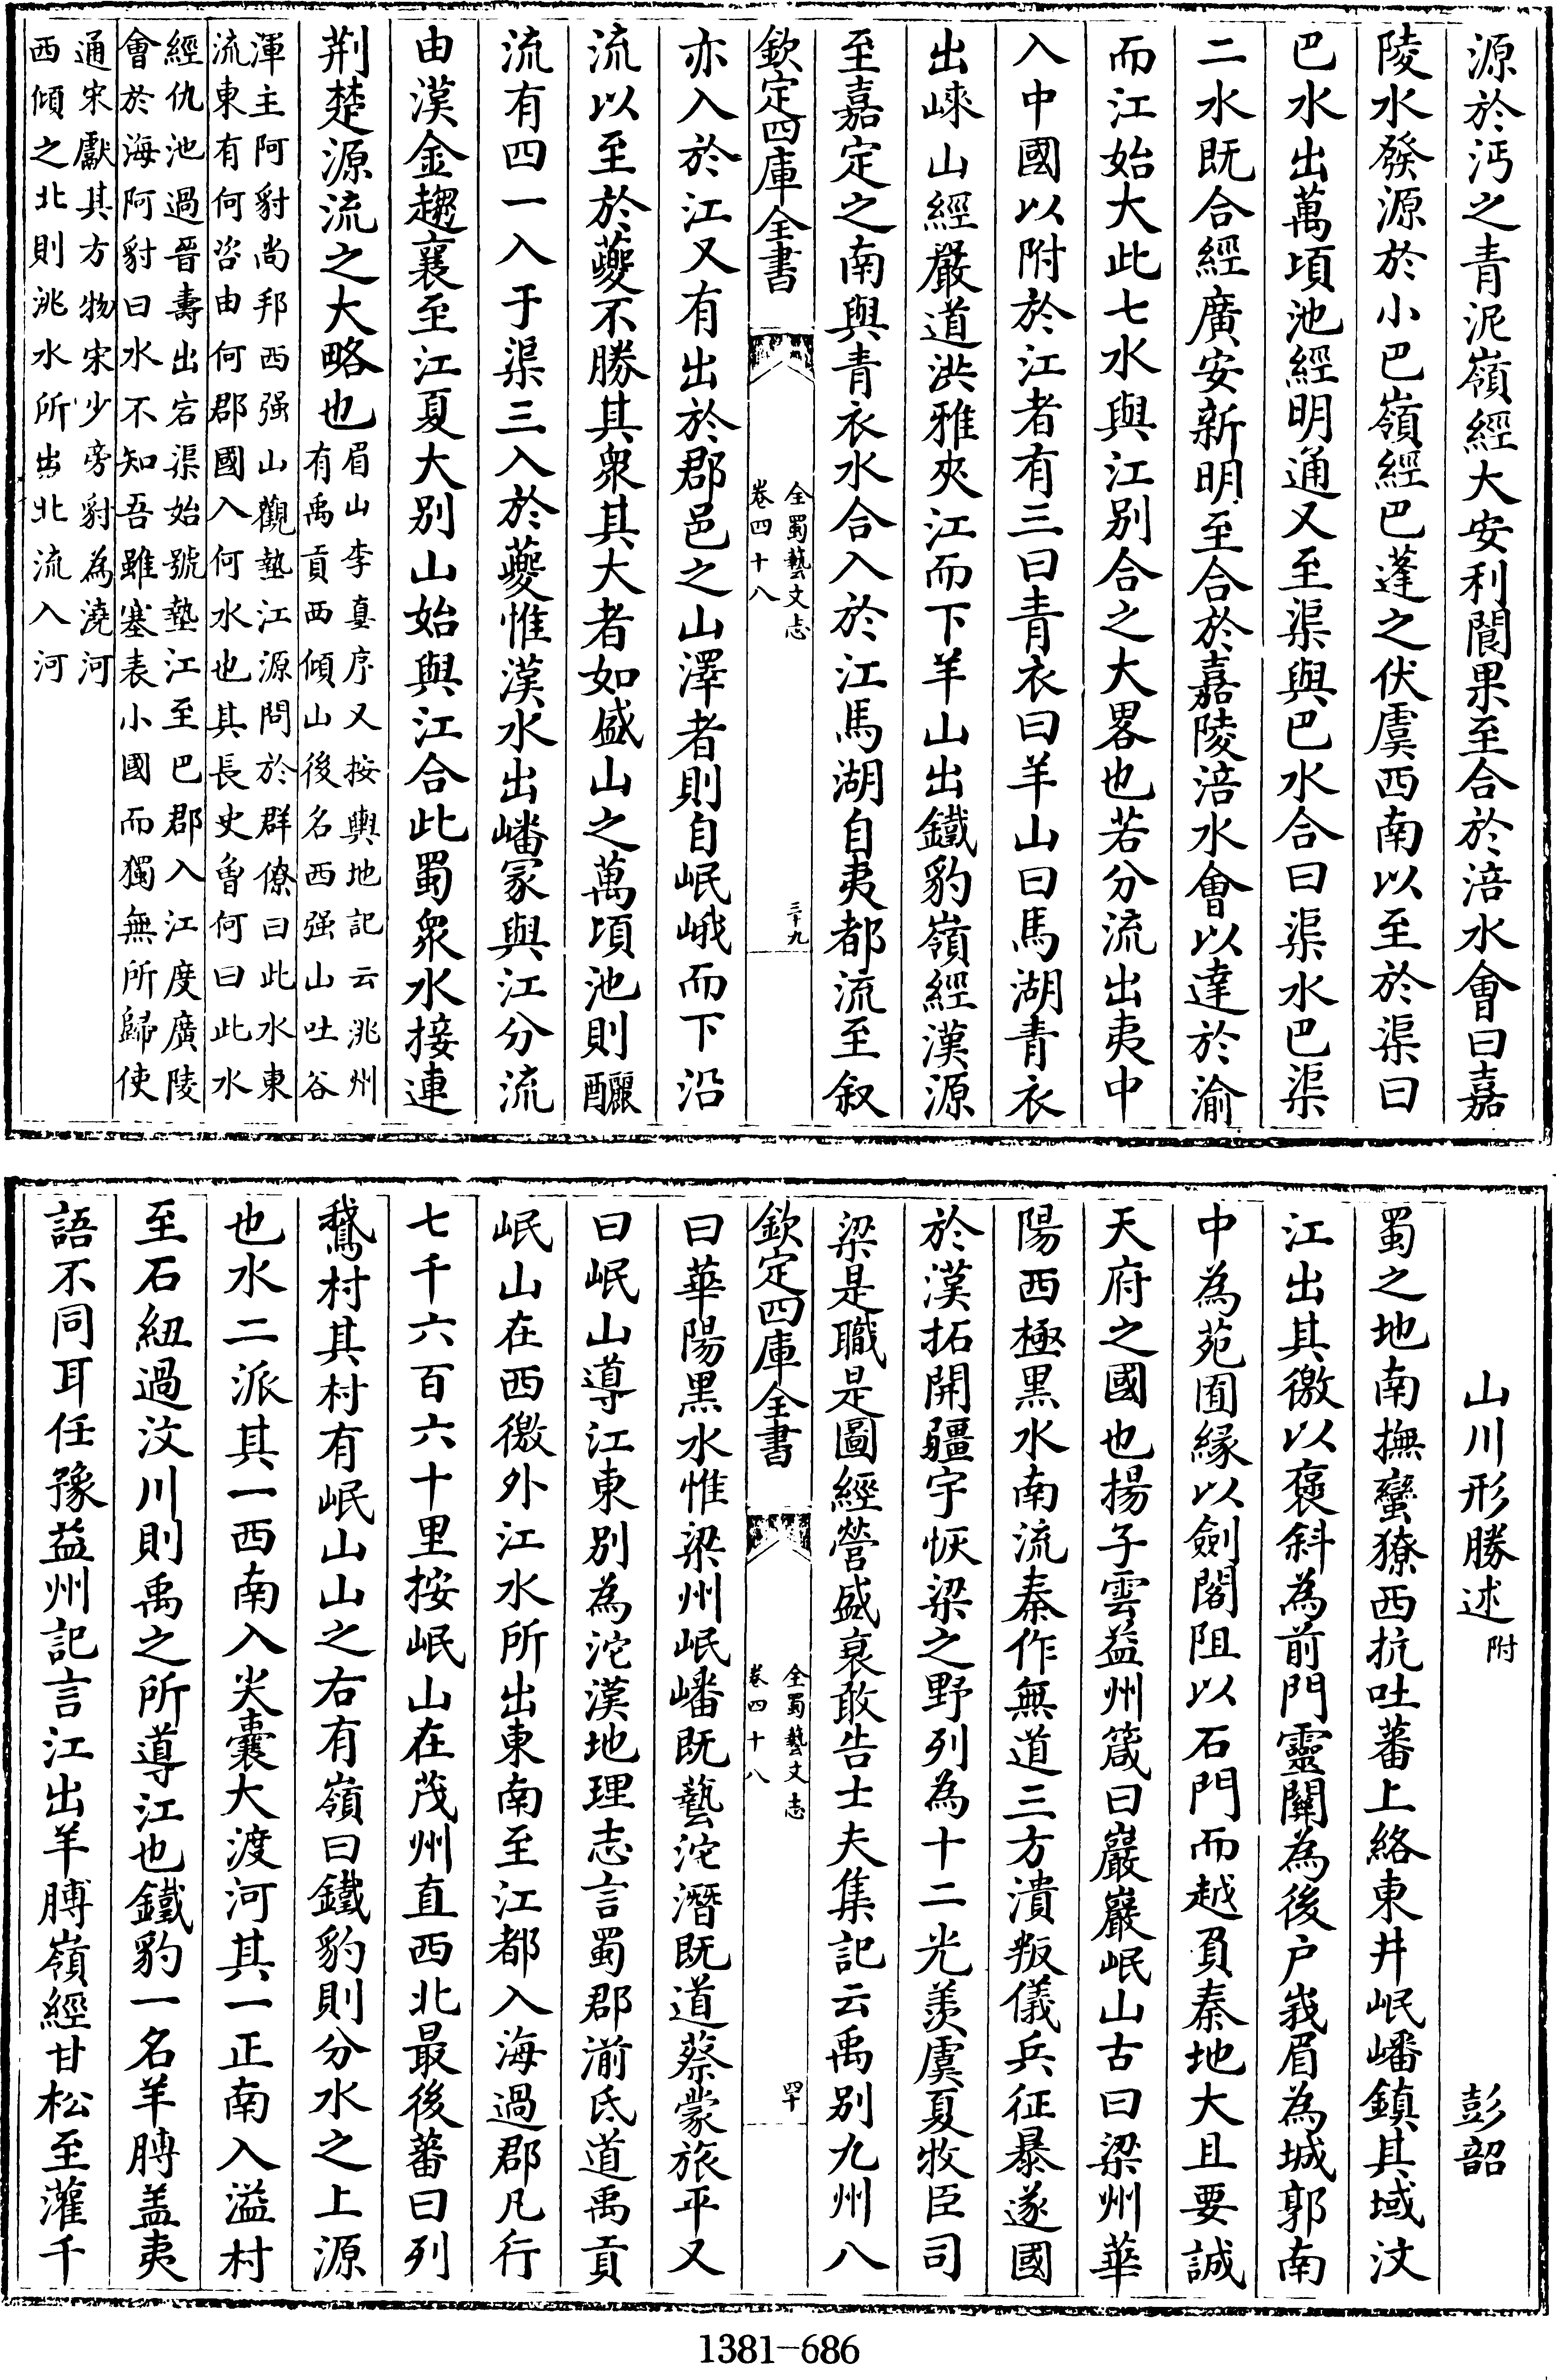 源於沔之青泥嶺經大安利閬果至合於涪水會曰嘉
陵水發源於小巴嶺經巴蓬之伏虞西南以至於渠曰
巴水出萬頃池經明通又至渠與巴水合曰渠水巴渠
二水既合經廣安新明至合於嘉陵涪水會以達於渝
而江始大此七水與江别合之大畧也若分流出夷中
入中國以附於江者有三曰青衣曰羊山曰馬湖青衣
出崍山經嚴道洪雅夾江而下羊山出鐵豹嶺經漢源
至嘉定之南與青衣水合入於江馬湖自夷都流至叙
欽定四庫全書
全蜀藝文志
卷四十八
三十九
亦入於江又有出於郡邑之山澤者則自岷峨而下沿
流以至於夔不勝其衆其大者如盛山之萬頃池則釃
流有四一入于渠三入於夔惟漢水出嶓冢與江分流
由漢金趨襄至江夏大别山始與江合此蜀衆水接連
荆楚源流之大略也
眉山李𡊮序又按輿地記云洮州
有禹貢西傾山後名西强山吐谷
渾主阿豺尚邦西强山觀墊江源問於群僚曰此水東
流東有何咨由何郡國入何水也其長史曾何曰此水
經仇池過晉壽出宕渠始號墊江至巴郡入江度廣陵
會於海阿豺曰水不知吾雖塞表小國而獨無所歸使
通宋獻其方物宋少旁豺為澆河
西傾之北則洮水所出北流入河
山川形勝述附
彭韶
蜀之地南撫蠻獠西抗吐蕃上絡東井岷嶓鎮其域汶
江出其徼以褒斜為前門靈關為後户峩眉為城郭南
中為苑囿緣以劍閣阻以石門而越負秦地大且要誠
天府之國也揚子雲益州箴曰巖巖岷山古曰梁州華
陽西極黒水南流秦作無道三方潰叛儀兵征暴遂國
於漢拓開疆宇恢梁之野列為十二光羡虞夏牧臣司
梁是職是圖經營盛衰敢告士夫集記云禹别九州八
欽定四庫全書
全蜀藝文志
卷四十八
四十
曰華陽黒水惟梁州岷嶓既藝沱潛既道蔡蒙旅平又
曰岷山導江東别為沱漢地理志言蜀郡湔氐道禹貢
岷山在西徼外江水所出東南至江都入海過郡凡行
七千六百六十里按岷山在茂州直西北最後蕃曰列
鵞村其村有岷山山之右有嶺曰鐵豹則分水之上源
也水二派其一西南入尖囊大渡河其一正南入溢村
至石紐過汶川則禹之所導江也鐵豹一名羊膊盖夷
語不同耳任豫益州記言江出羊膊嶺經甘松至灌千
1381-686